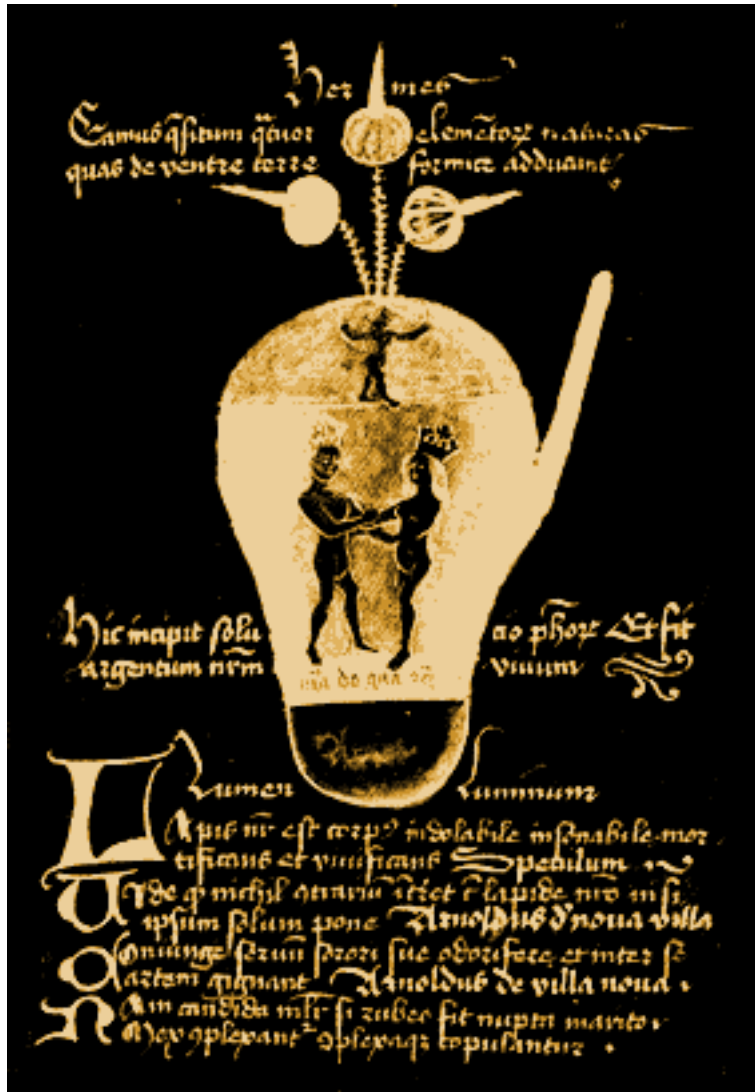 Hermes
Camus q̄situm q̄tuor elemētorꝝ naturas
quas de ventre terre formice adducunt
Hic incipit solutio ph̄orꝝ Et fit
argentum nr̄m vivum
Lumen Luminum
Lapis nr̄ est corpꝰ indolabile insonabile mor
tificans et vivificans Speculum
nichil ꝯtrariū lapide nr̄o nisi
ipsum solum pone Arnoldus d' nova villa
Coniunge servū sorori sue odorifere et inter se
artem gignant Arnoldus de villa nova
Nam candida ml̄r si rubeo fit nupta marito
Mox ꝯplexantᷣ ꝯplexaqꝫ copulantur